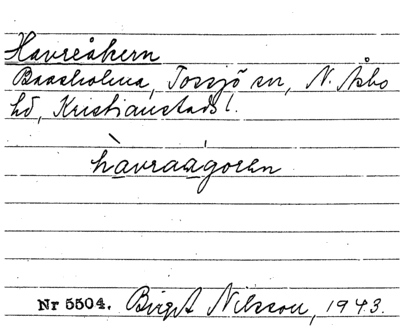 Havreåkern
Baaseholma, Tossjö sn, N. Åsbo
hd, Kristianstads l.
hàvraagorən
Nr 5504. Birgit Nilsson, 1943.